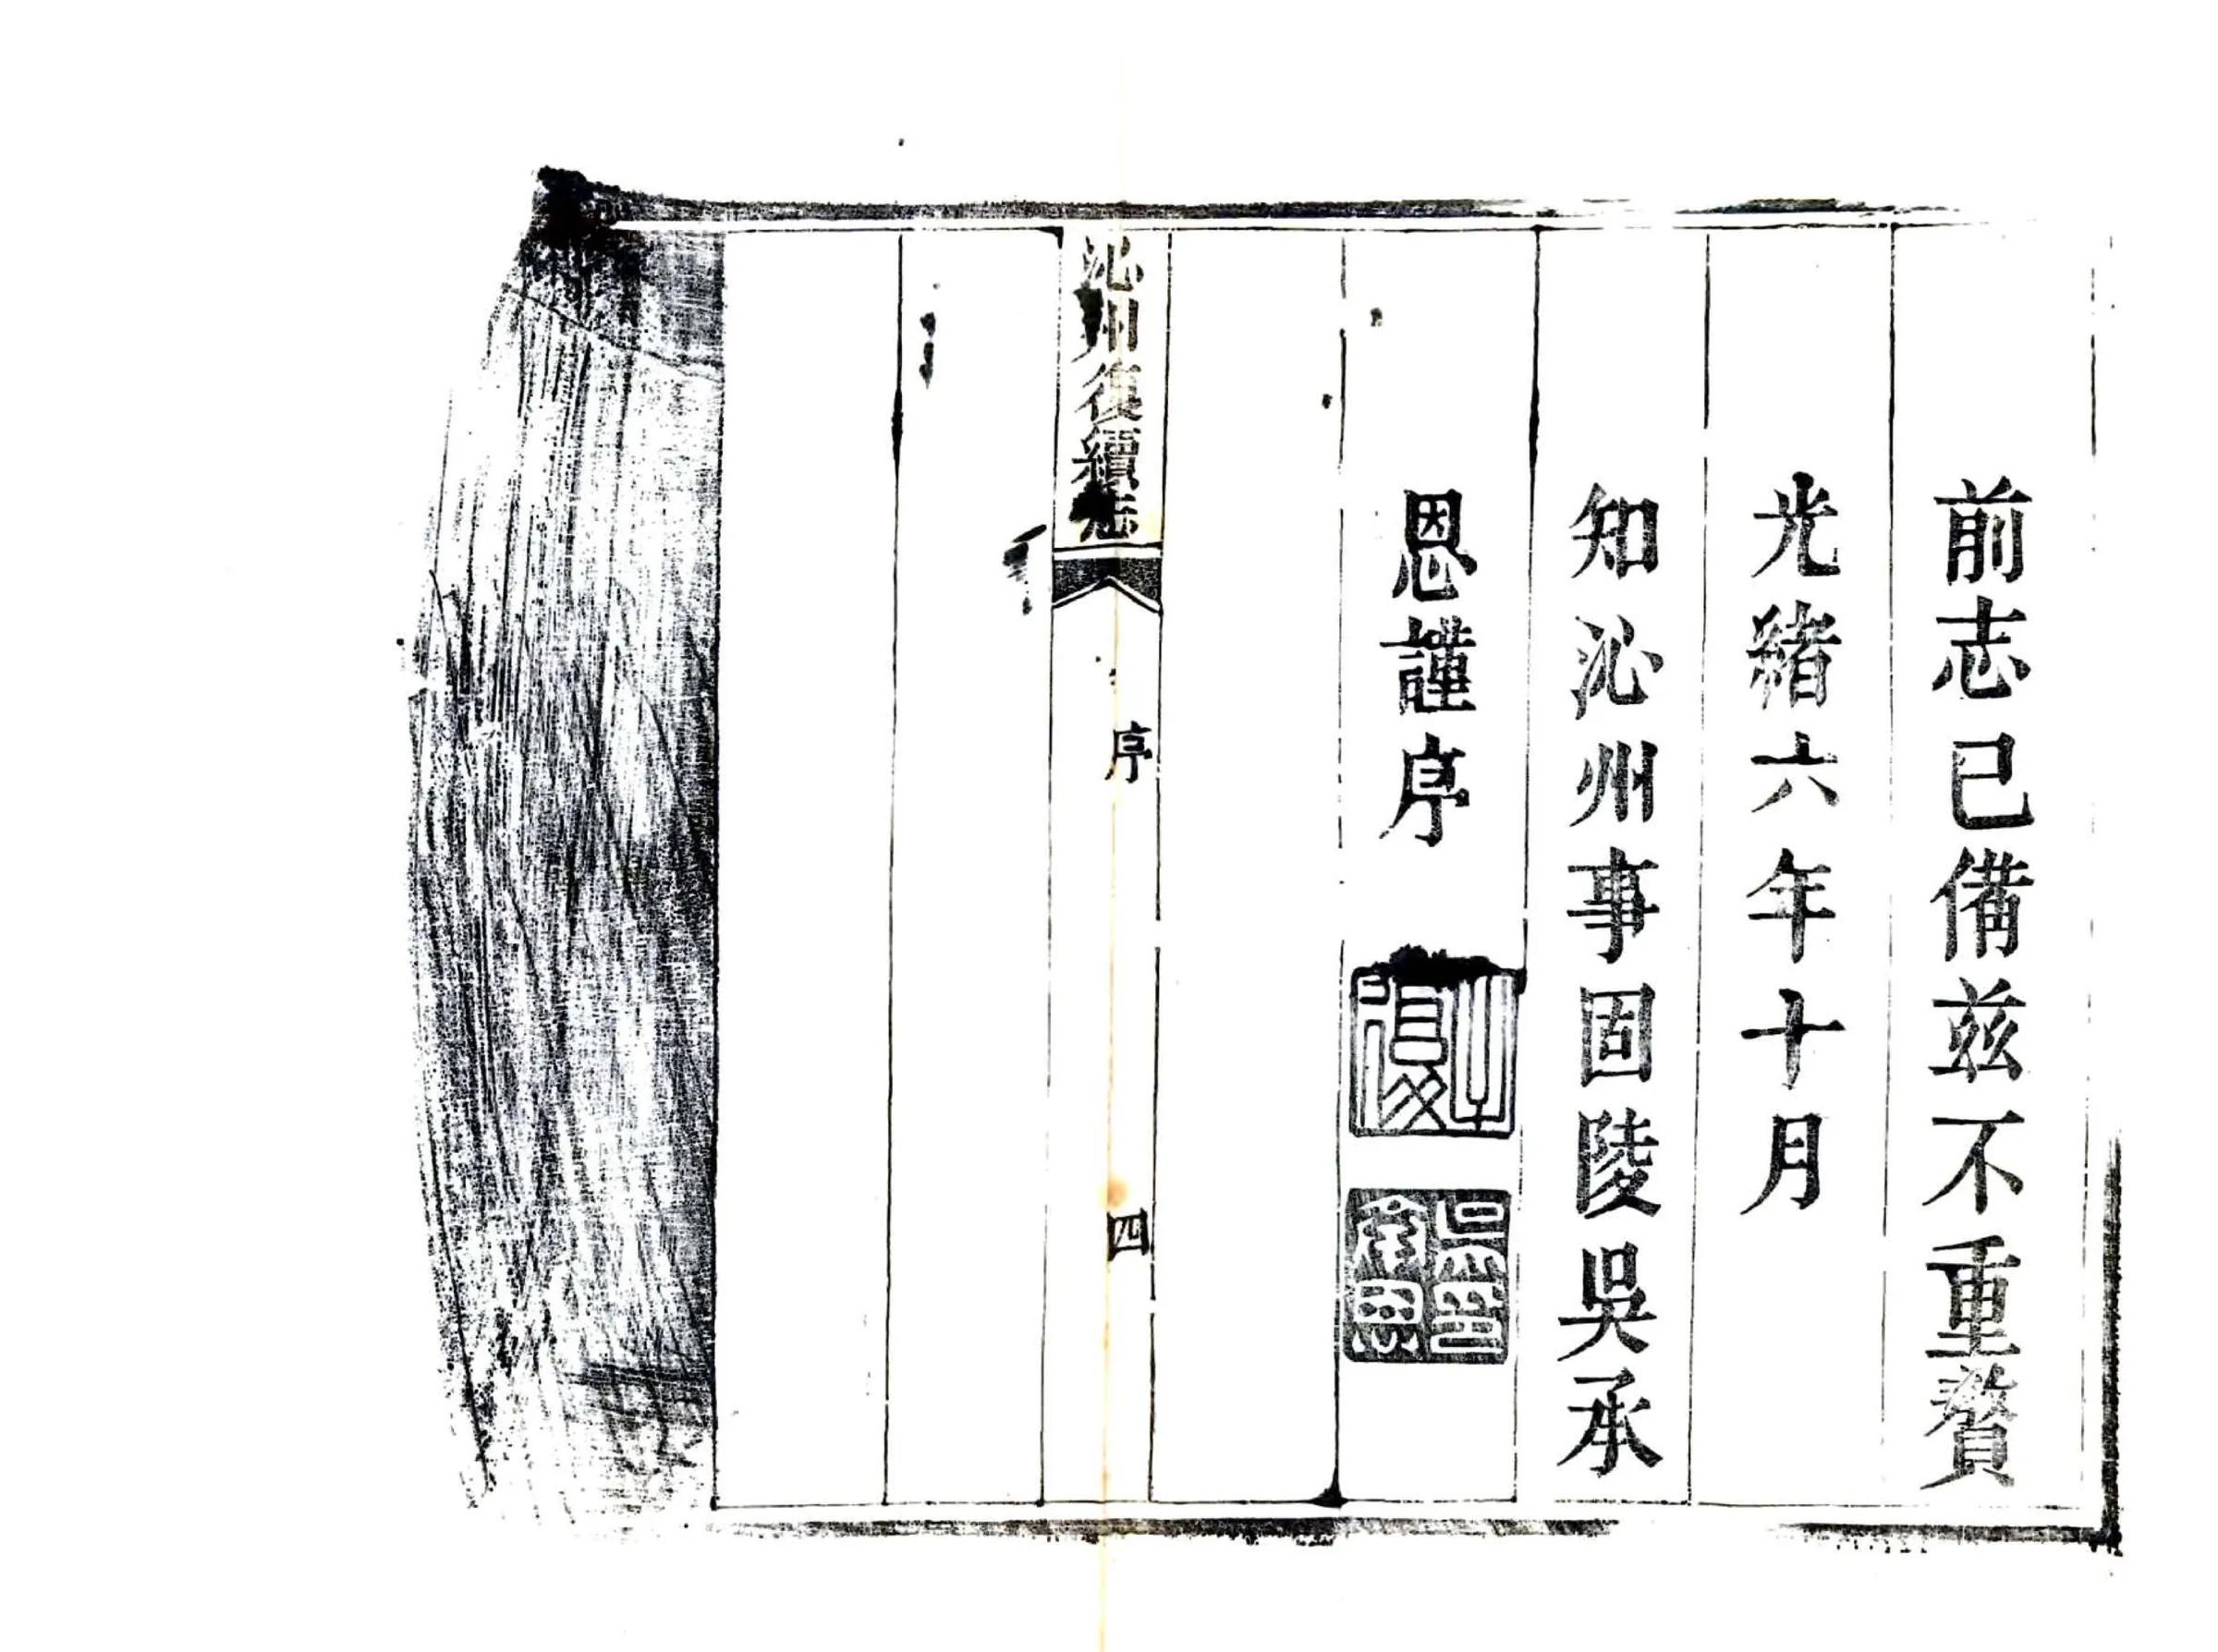 前志已備兹不重贅
光緒六年十月
知沁州事固陵吳承
恩謹序
吳承恩印
沁州復續志
序
四